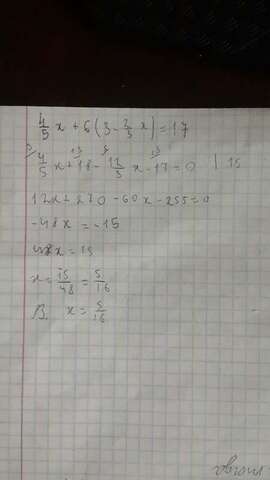 4/5 x + 6(3 - 2/3 x) = 17
4/5 x + 18 - 12/3 x - 17 = 0 | 15
12x + 270 - 60x - 255 = 0
-48x = -15
48x = 15
x = 15/48 = 5/16
x = 5/16